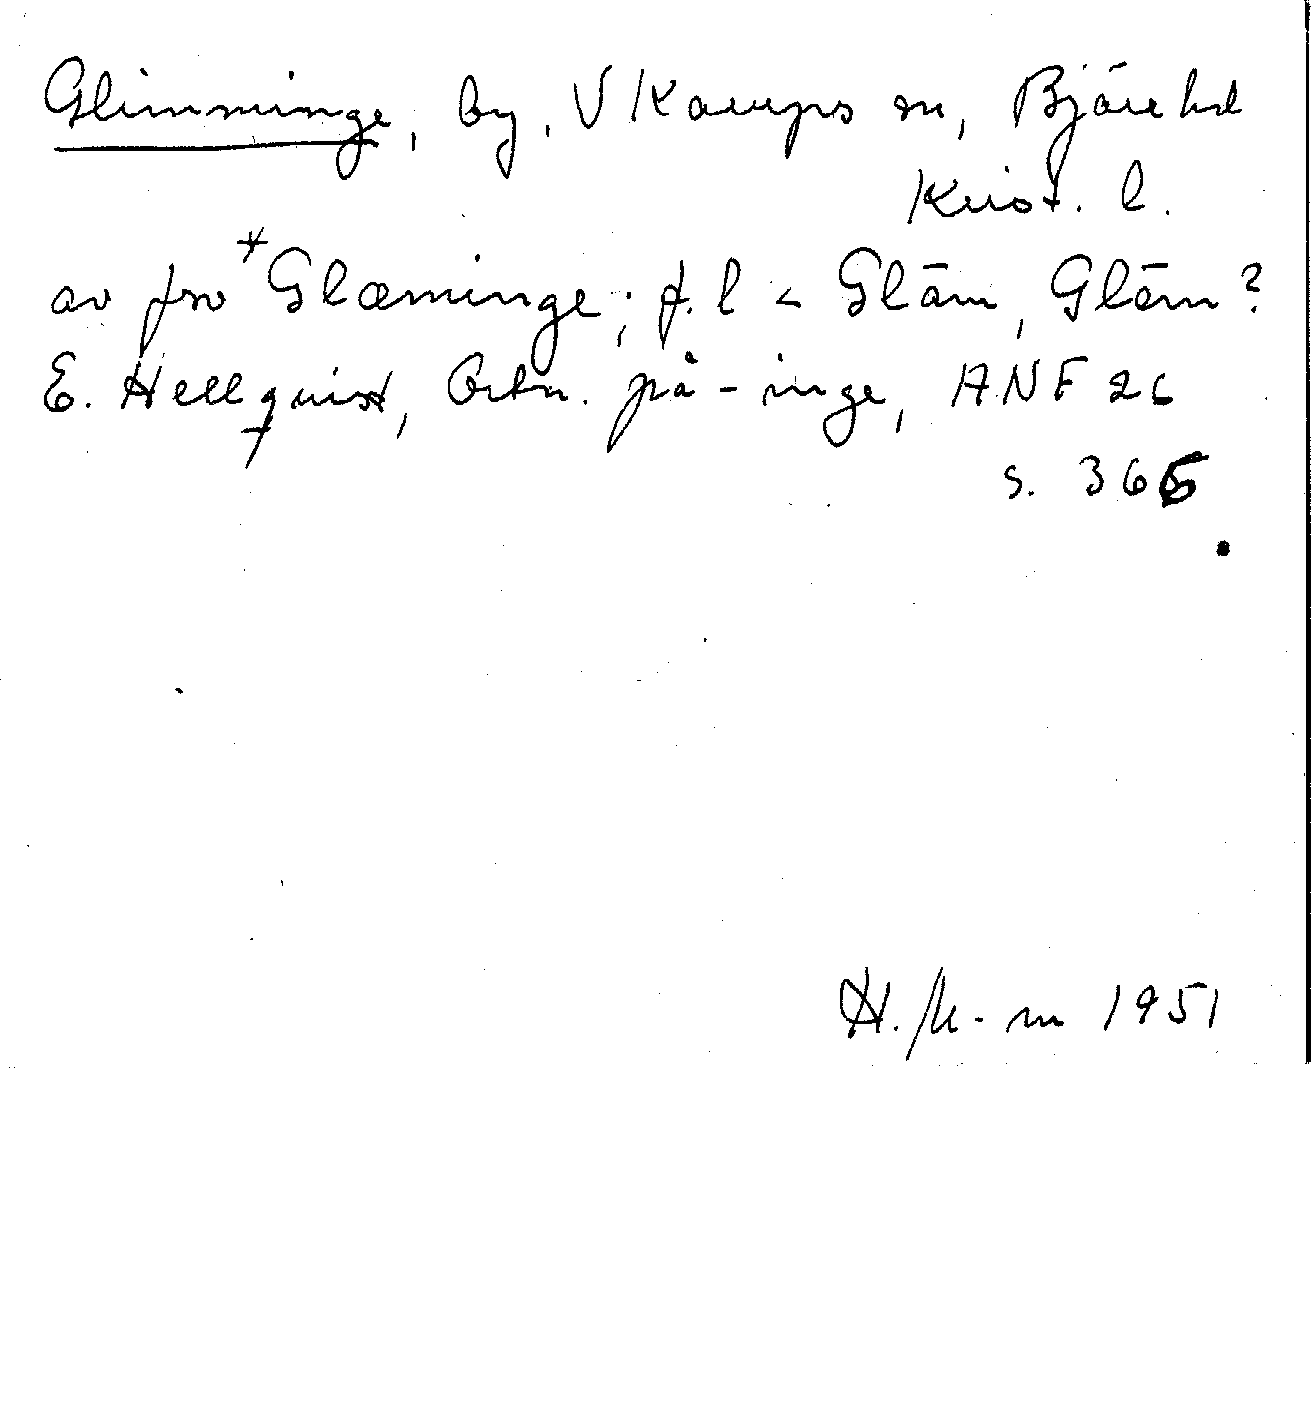 Glimminge, by, V Karups sn, Bjäre hd
Krist. l.
av fsv *Glæminge; f. l < Glām, Glām?
E. Hellquist, Ortn. på -inge, ANF 26
s. 366
1951